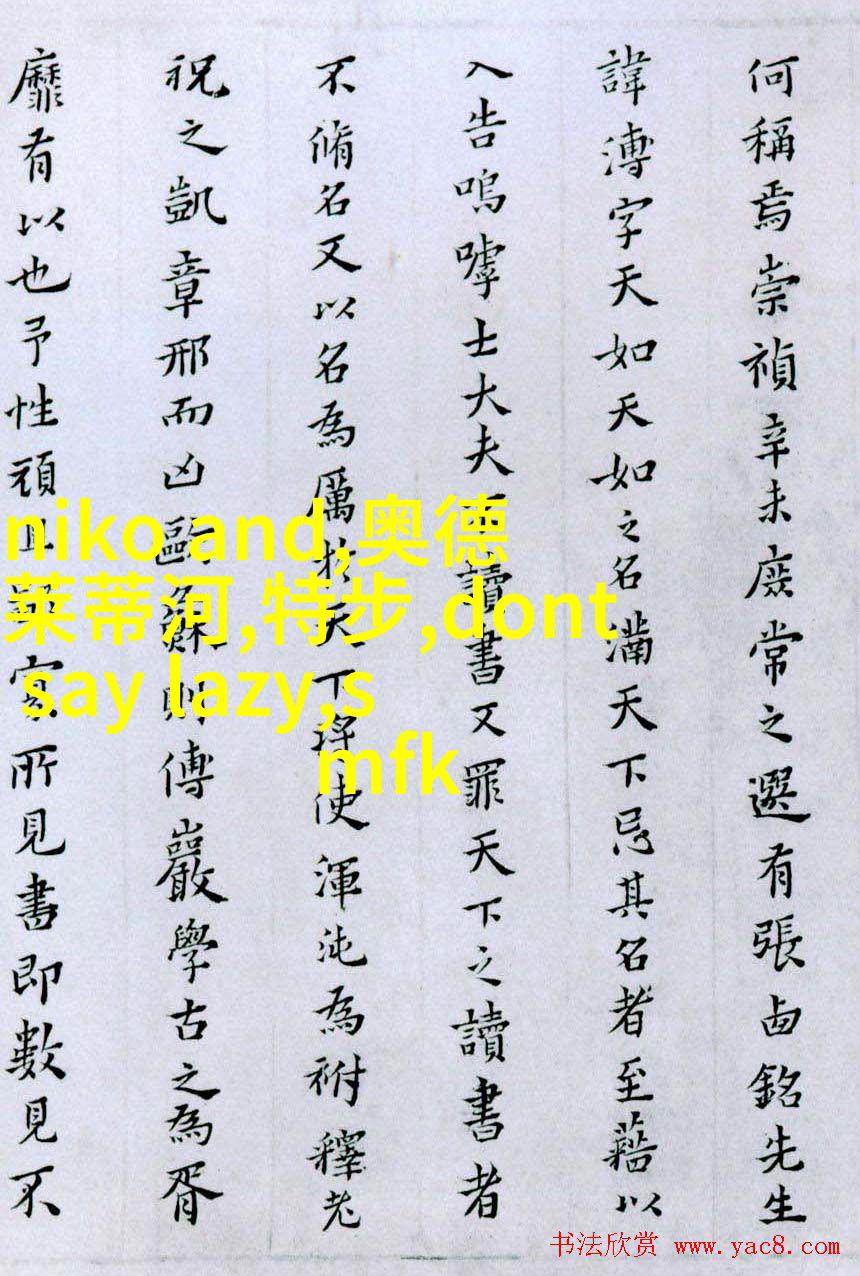 何稱焉崇禎辛未廢常之選有張鹵銘先生
諱溥字天如天如之名滿天下忌其名者至藉以
入告嗚嘑士大夫讀書又罪天下之讀書者
不脩名又以名為厲於天下將使渾沌為祔釋老
祝之凱章邢而凶歐蘇則傅巖學古之為胥
靡有以也予性頑且寠所見書即數見不
niko and,奥德
莱蒂河,特步,dont
say lazy,s
mfk
书法欣赏 www.yac8.com